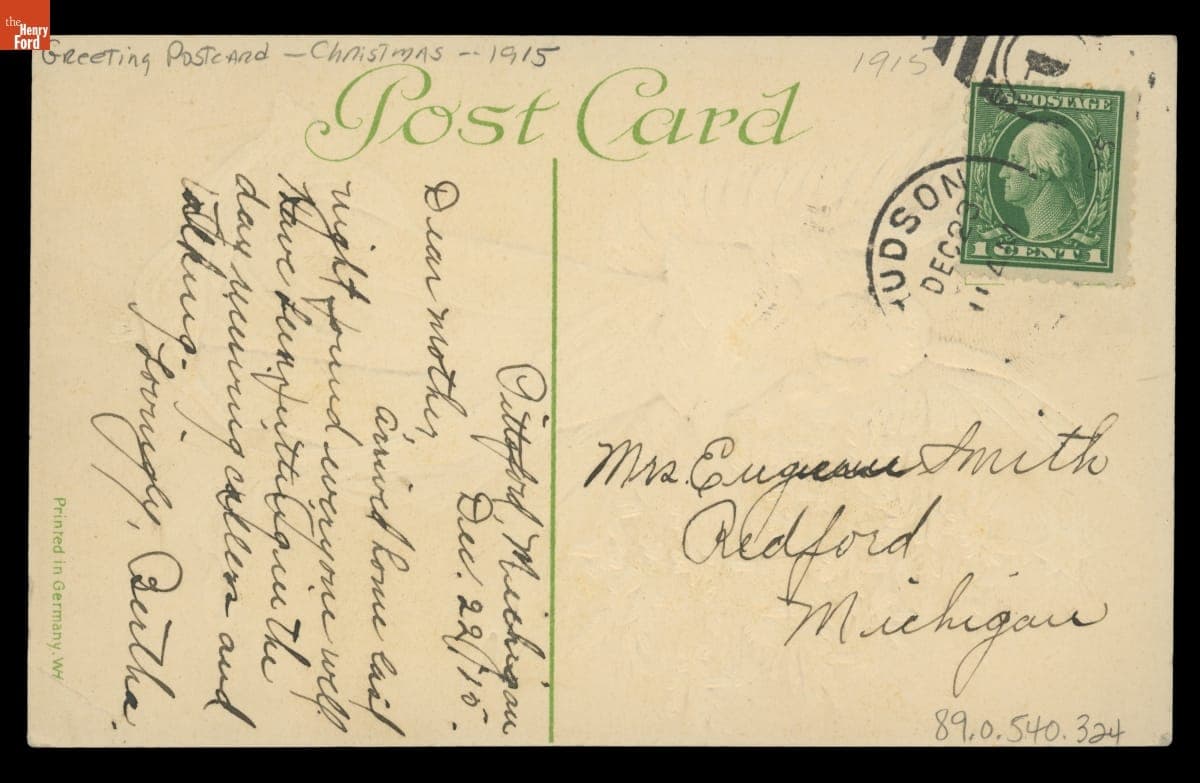 the
Henry
Ford
Greeting Postcard — Christmas -- 1915
1915
Post Card
U.S. POSTAGE
1 CENT 1
HUDSON
DEC 23
Pittsford, Michigan
Dec. 22/15.
Dear Mother,
arrived home last
night found everyone well
Have been the
day callers and
talking.
Lovingly, Bertha.
Mrs. Eugene Smith
Redford
Michigan
Printed in Germany. WH
89.0.540.324